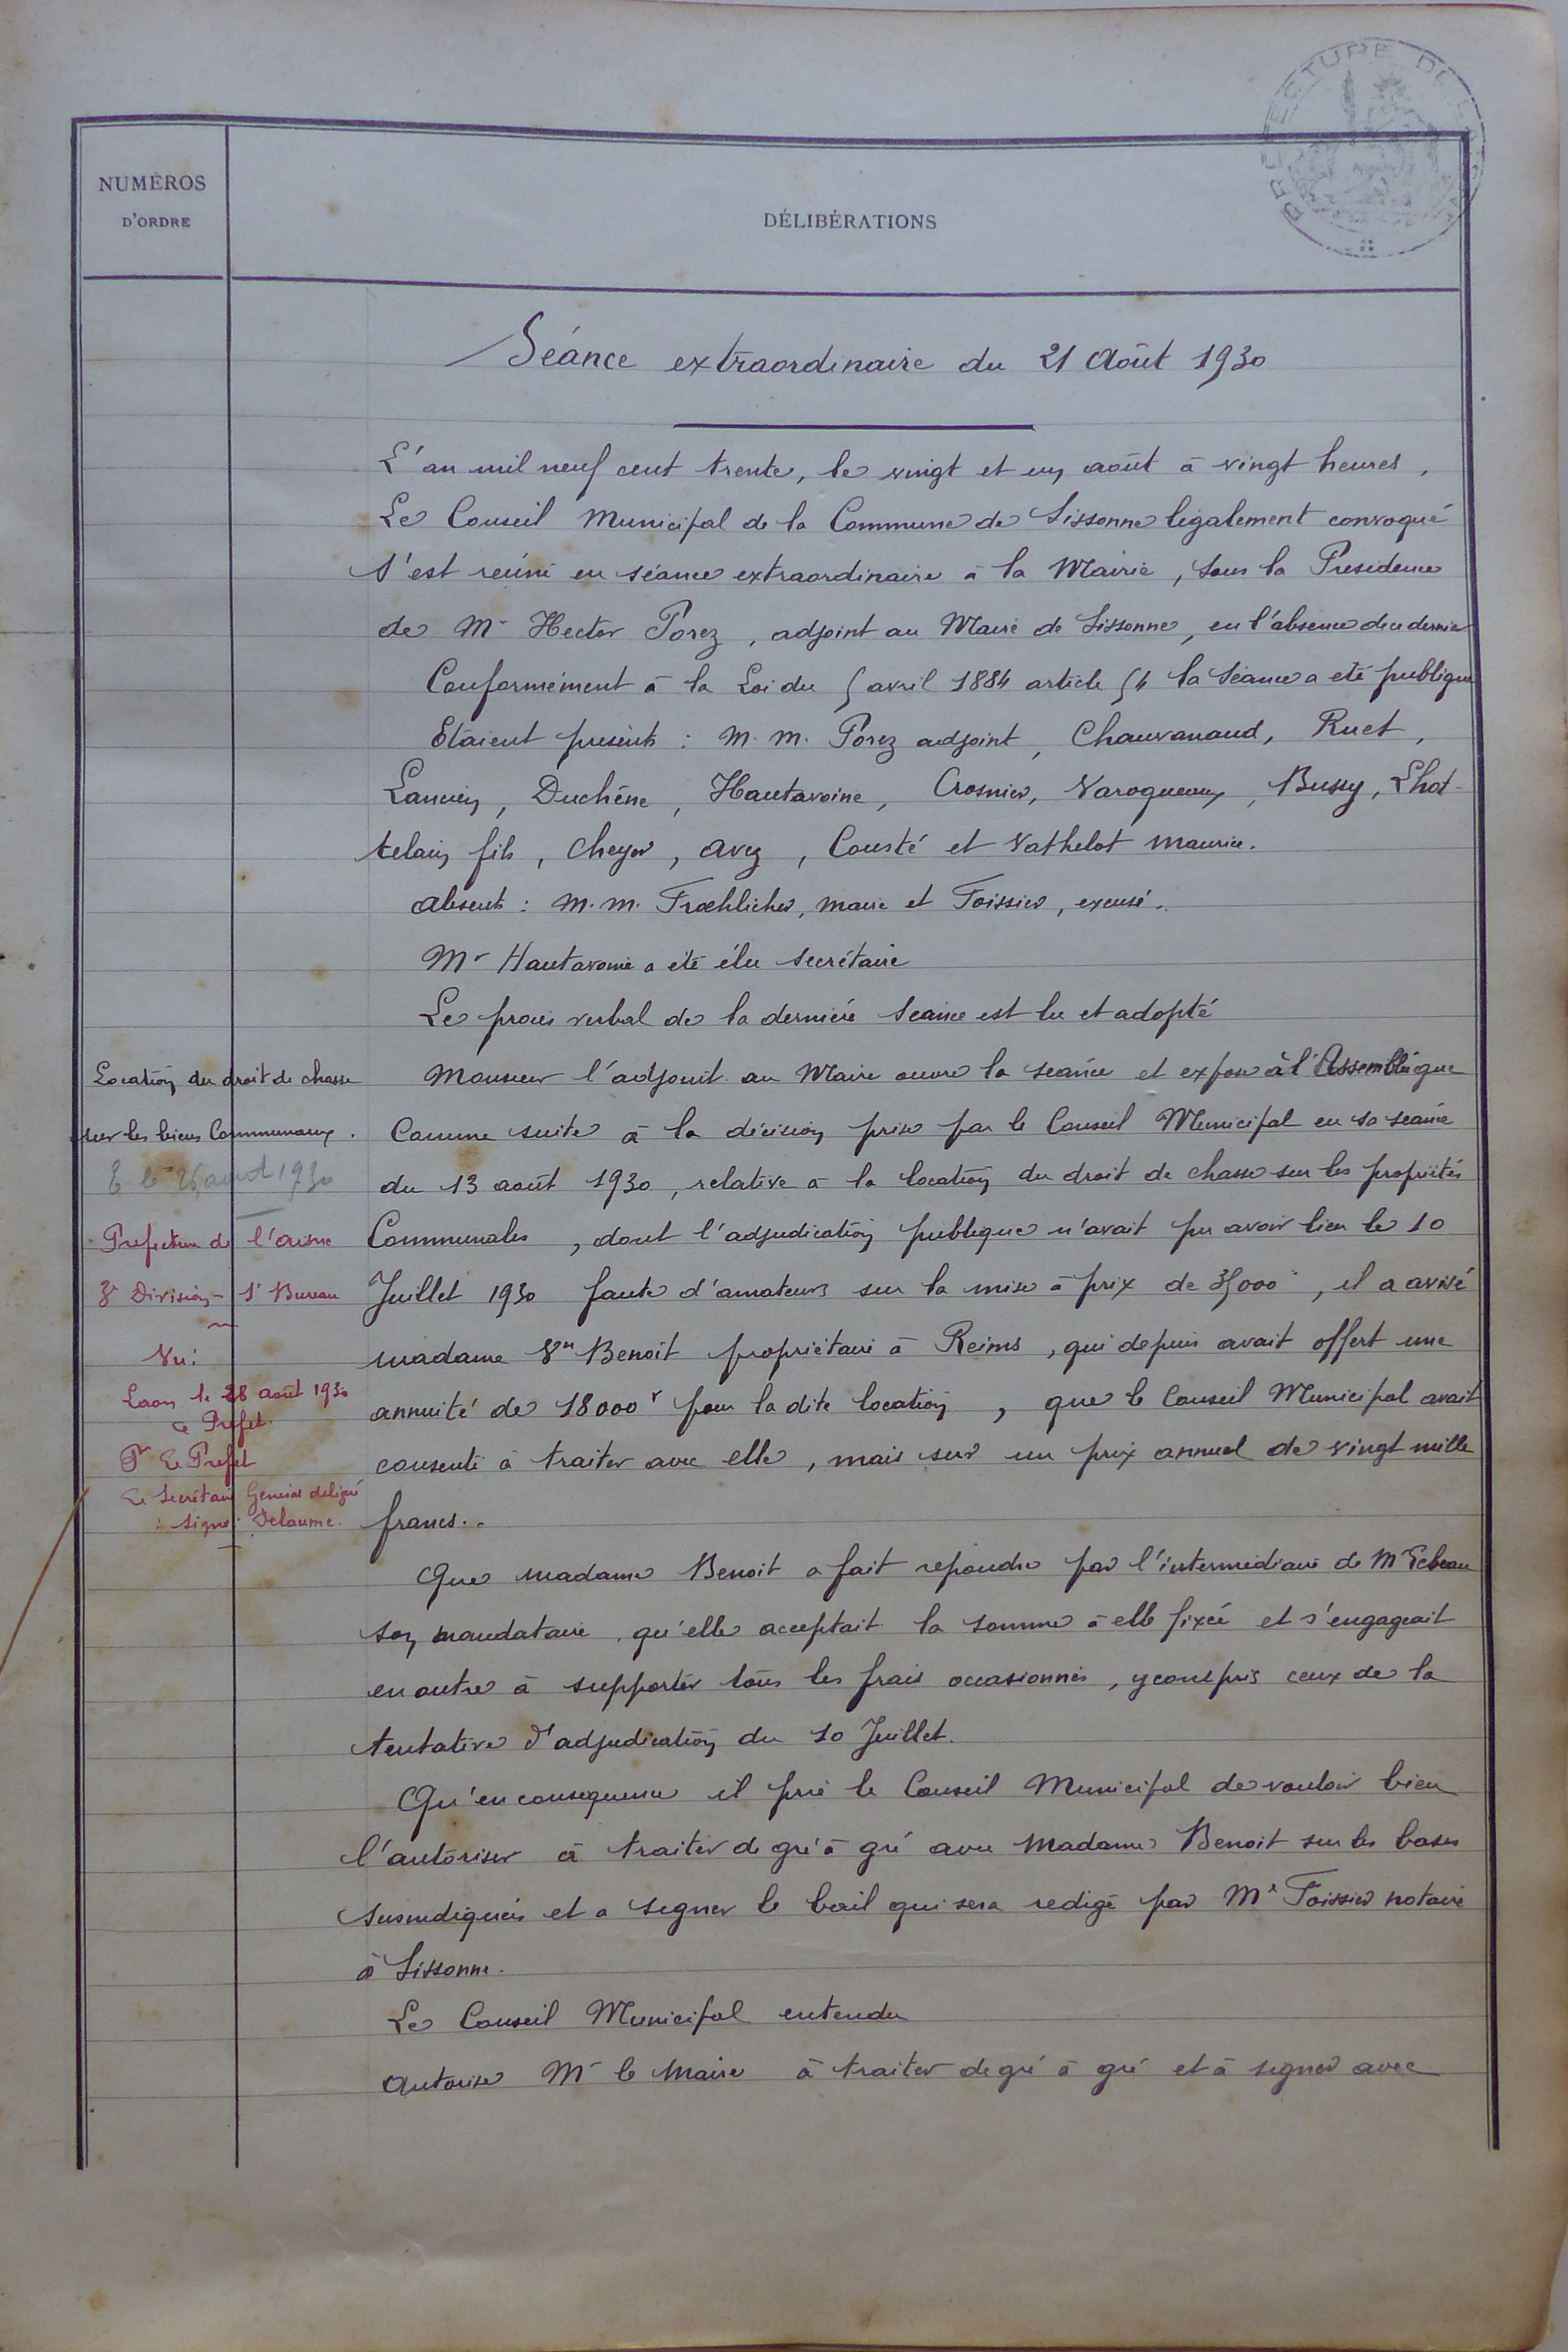 PREFECTURE DE L'AISNE
NUMÉROS
D'ORDRE
DÉLIBÉRATIONS
Séance extraordinaire du 21 Août 1930
L'an mil neuf cent trente, le vingt et un août à vingt heures,
Le Conseil Municipal de la Commune de Sissonne légalement convoqué
s'est réuni en séance extraordinaire à la Mairie, sous la Présidence
de Mr Hector Porez, adjoint au Maire de Sissonne, en l'absence de ce dernier
Conformément à la Loi du 5 avril 1884 article 54 la séance a été publique
Etaient présents : M.M. Porez adjoint, Chauvanaud, Ruet,
Lancien, Duchêne, Hautavoine, Crosnier, Varoqueaux, Bussy, Lhot-
telain fils, Cheyer, Avez, Cousté et Vathelot Maurice.
Absents : M.M. Froehlicher, maire et Foissier, excusé.
Mr Hautavoine a été élu secrétaire
Le procès verbal de la dernière séance est lu et adopté
Location du droit de chasse
sur les biens Communaux.
E. le 26 août 1930
Prefecture de l'aisne
3e Division - 1r Bureau
Vu :
Laon le 28 août 1930
Le Préfet
Pr Le Préfet
Le Secrétaire Général délégué
signé : Delaume.
Monsieur l'adjoint au Maire ouvre la séance et expose à l'Assemblée que
Comme suite à la décision prise par le Conseil Municipal en sa séance
du 13 août 1930, relative à la location du droit de chasse sur les propriétés
Communales, dont l'adjudication publique n'avait pu avoir lieu le 10
Juillet 1930 faute d'amateurs sur la mise à prix de 35000, il a avisé
madame Vve Benoit propriétaire à Reims, qui depuis avait offert une
annuité de 18000f pour la dite location, que le Conseil Municipal avait
consenti à traiter avec elle, mais sur un prix annuel de vingt mille
francs.
Que madame Benoit a fait répondre par l'intermédiaire de Mr
son mandataire, qu'elle acceptait la somme à elle fixée et s'engageait
en outre à supporter tous les frais occasionnés, y compris ceux de la
tentative d'adjudication du 10 Juillet.
Qu'en conséquence il prie le Conseil Municipal de vouloir bien
l'autoriser à traiter de gré à gré avec Madame Benoit sur les bases
susindiquées et à signer le bail qui sera rédigé par Me Foissier notaire
à Sissonne.
Le Conseil Municipal entendu
Autorise Mr le Maire à traiter de gré à gré et à signer avec